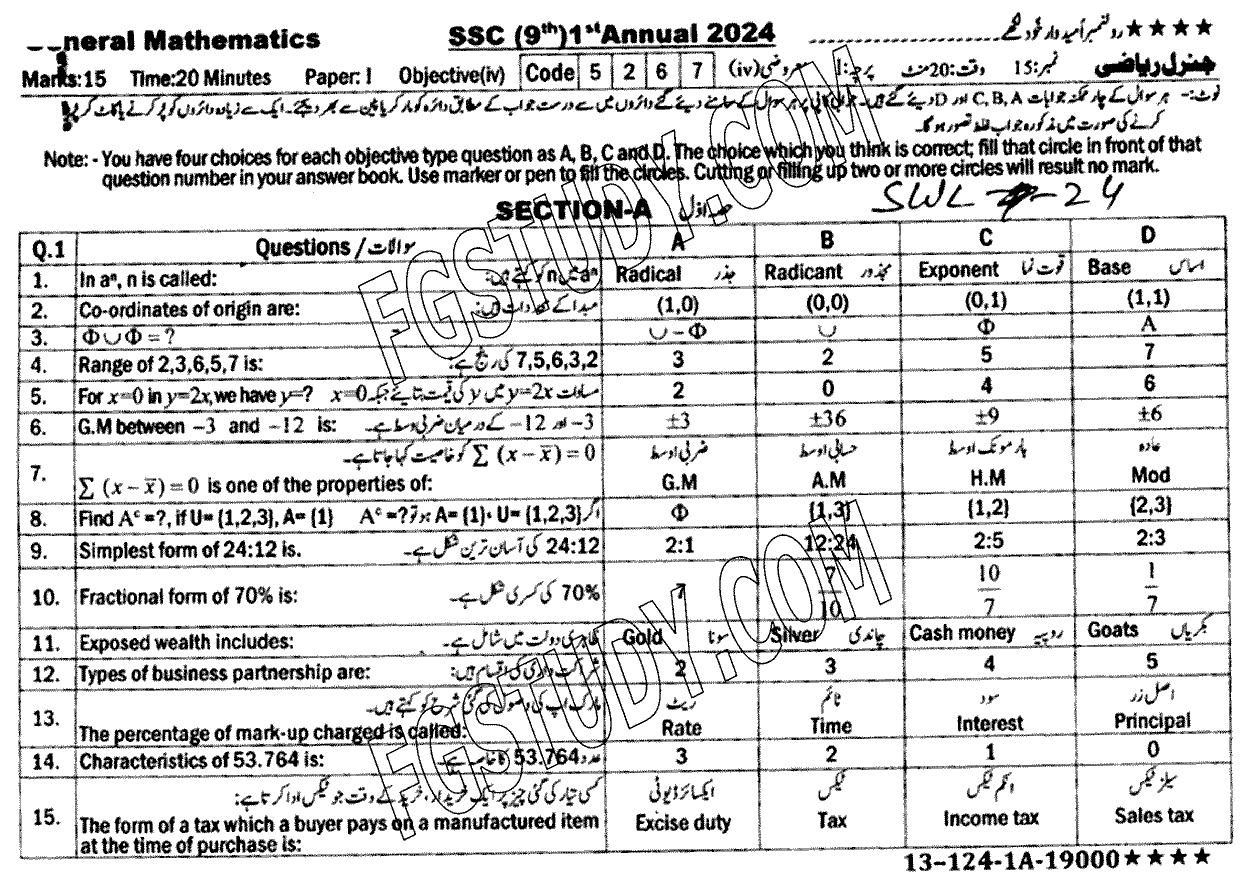 General Mathematics SSC (9th)1st Annual 2024 رولنمبر اُمیدوار خود لکھے ★★★★
Marks:15 Time:20 Minutes Paper: I Objective(iv) Code 5 2 6 7 معروضی (iv) پرچہ: I وقت:20منٹ نمبر: 15 جنرل ریاضی
نوٹ:- ہر سوال کے چار ممکنہ جوابات C, B, A اور D دیئے گئے ہیں۔ جوابی کاپی پر ہر سوال کے سامنے دیئے گئے دائروں میں سے درست جواب کے مطابق دائرہ کو مارکر یا پین سے بھر دیجئے۔ ایک سے زیادہ دائروں کو پُر کرنے یا کاٹ کر پُر
کرنے کی صورت میں مذکورہ جواب غلط تصور ہو گا۔
Note: - You have four choices for each objective type question as A, B, C and D. The choice which you think is correct; fill that circle in front of that
question number in your answer book. Use marker or pen to fill the circles. Cutting or filling up two or more circles will result no mark.
SECTION-A حصہ اوّل SWL -24
Q.1 Questions / سوالات A B C D
1. In aⁿ, n is called: aⁿ میں n کو کہتے ہیں: Radical جذر Radicant مجذور Exponent قوت نما Base اساس
2. Co-ordinates of origin are: مبداکے محددات ہیں: (1,0) (0,0) (0,1) (1,1)
3. Φ∪Φ = ? ∪ – Φ ∪ Φ A
4. Range of 2,3,6,5,7 is: 7,5,6,3,2 کی رینج ہے: 3 2 5 7
5. For x=0 in y=2x, we have y=? مساوات y=2x میں y کی قیمت بتایئے جبکہ x=0 2 0 4 6
6. G.M between –3 and –12 is: –3 اور –12 کے درمیان ضربی اوسط ہے۔ ±3 ±36 ±9 ±6
7. ∑ (x – x̄) = 0 کو خاصیت کہا جاتا ہے۔ ضربی اوسط حسابی اوسط ہارمونک اوسط عادہ
∑ (x – x̄) = 0 is one of the properties of: G.M A.M H.M Mod
8. Find Aᶜ =?, if U= {1,2,3}, A= {1} اگر U= {1,2,3}، A= {1} ہو تو Aᶜ =? Φ {1,3} {1,2} {2,3}
9. Simplest form of 24:12 is. 24:12 کی آسان ترین شکل ہے۔ 2:1 12:24 2:5 2:3
10. Fractional form of 70% is: 70% کی کسری شکل ہے۔ 7 7/10 10/7 1/7
11. Exposed wealth includes: ظاہری دولت میں شامل ہے۔ Gold سونا Silver چاندی Cash money روپیہ Goats بکریاں
12. Types of business partnership are: شراکت داری کی اقسام ہیں: 2 3 4 5
13. مارک اپ کی وصول کی گئی شرح کو کہتے ہیں۔ ریٹ ٹائم سود اصل زر
The percentage of mark-up charged is called: Rate Time Interest Principal
14. Characteristics of 53.764 is: عدد 53.764 کا خاصہ ہے۔ 3 2 1 0
15. کسی تیار کی گئی چیز پر ایک خریدار، خرید کے وقت جو ٹیکس ادا کرتا ہے: ایکسائز ڈیوٹی ٹیکس انکم ٹیکس سیلز ٹیکس
The form of a tax which a buyer pays on a manufactured item Excise duty Tax Income tax Sales tax
at the time of purchase is:
13-124-1A-19000★★★★
FGSTUDY.COM
FGSTUDY.COM